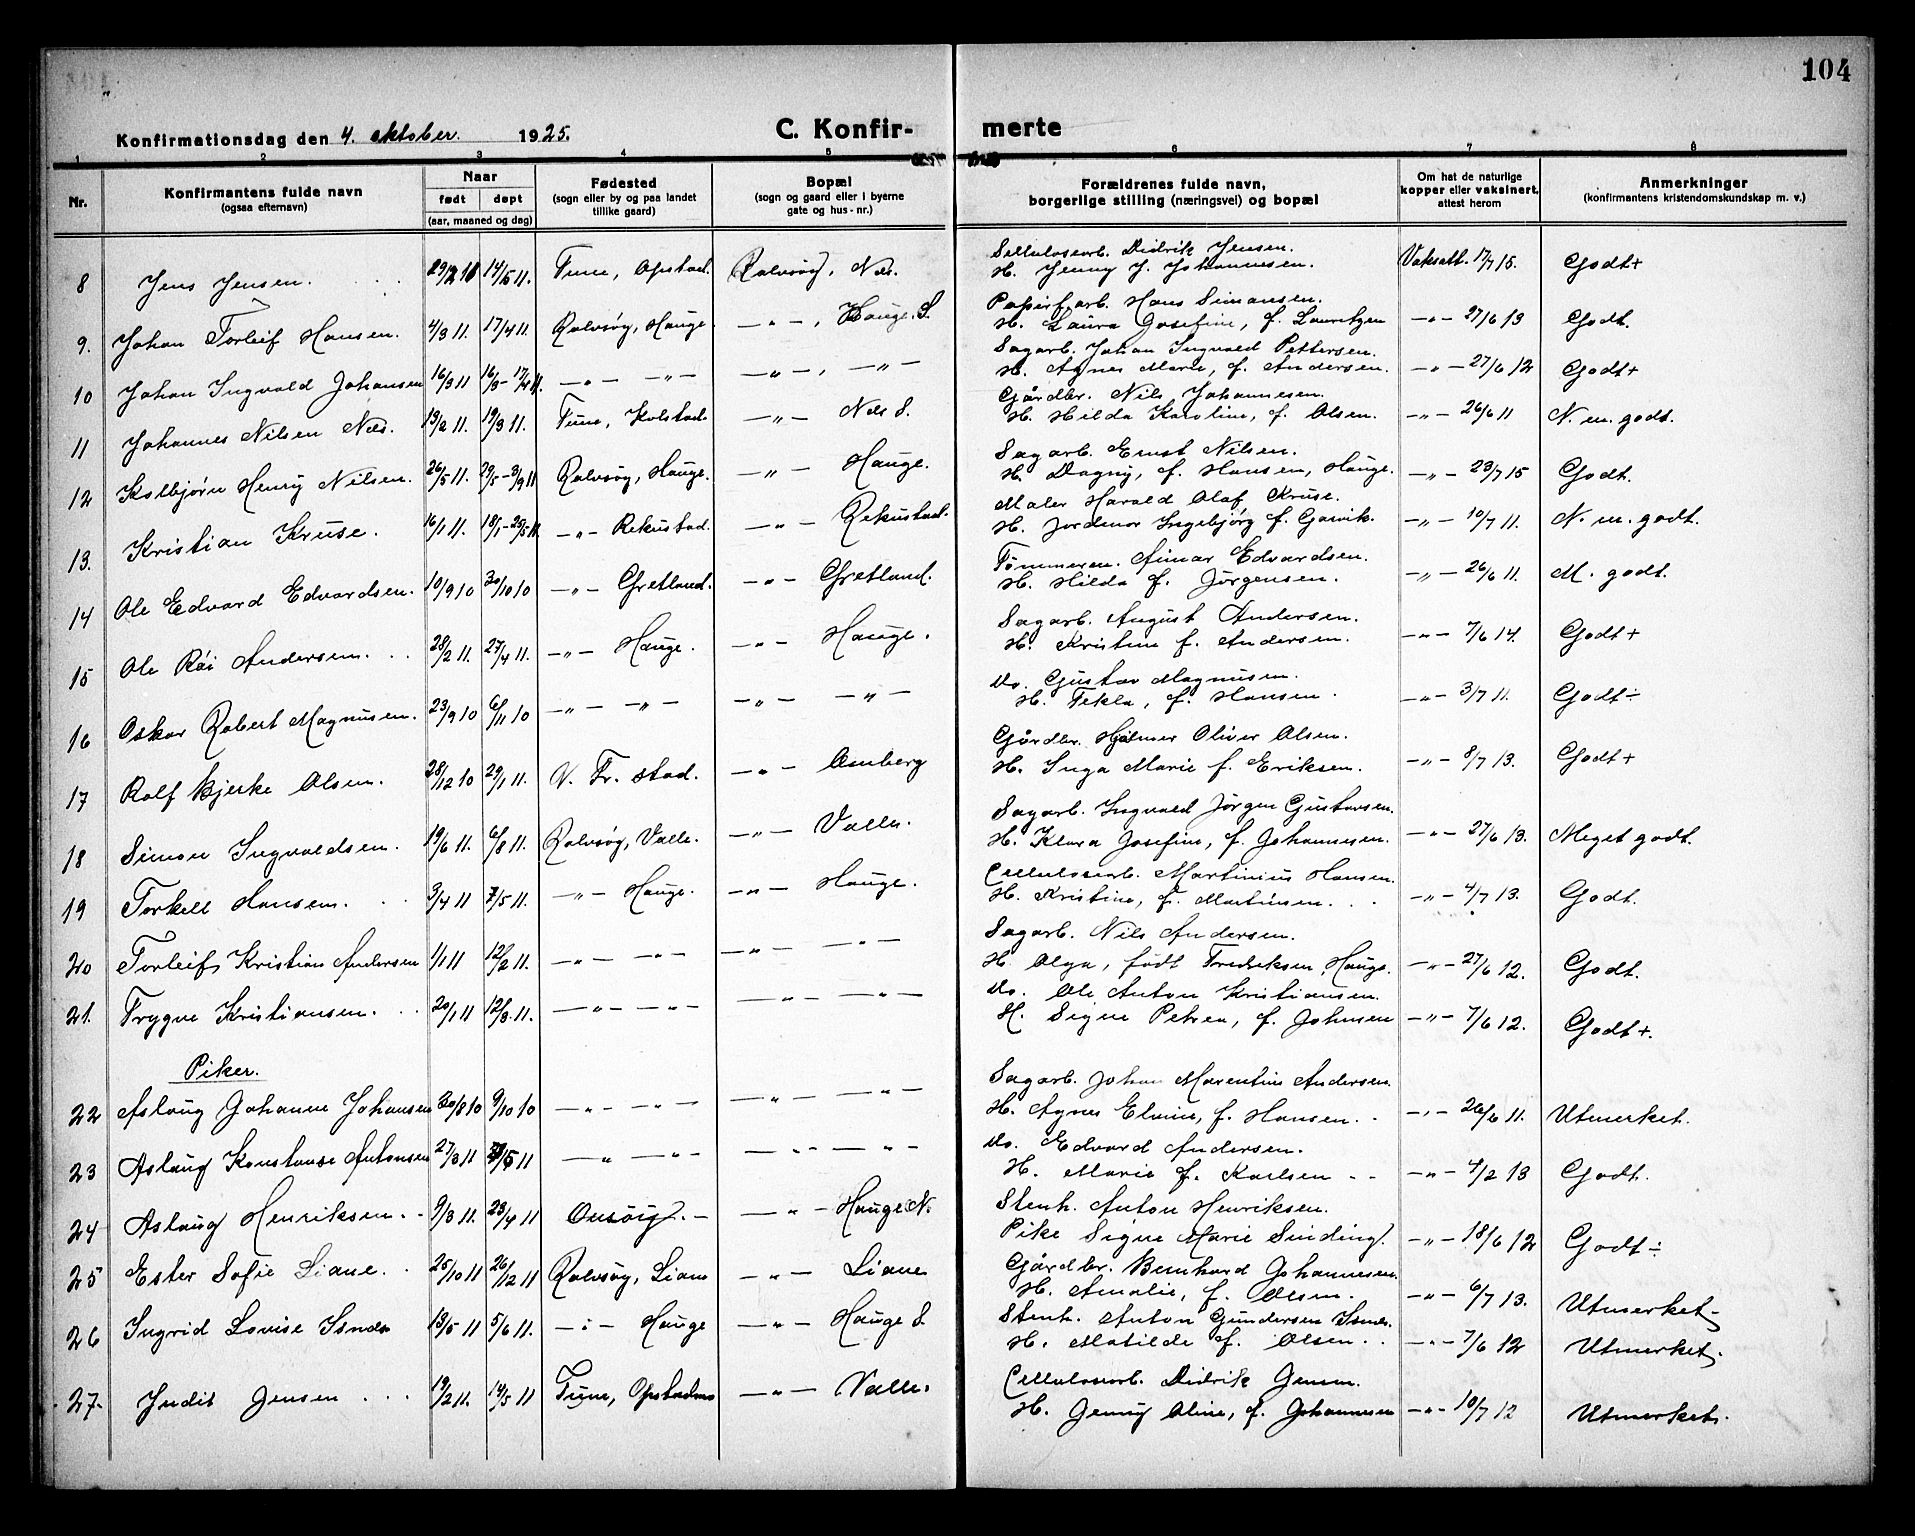 104
Konfirmationsdag den 4. oktober. 1925.
C. Konfir- merte
1 2 3 4 5 6 7 8
Nr.
Konfirmantens fulde navn
(ogsaa efternavn)
Naar
født døpt
(aar, maaned og dag)
Fødested
(sogn eller by og paa landet
tillike gaard)
Bopæl
(sogn og gaard eller i byerne
gate og hus-nr.)
Forældrenes fulde navn,
borgerlige stilling (næringsvei) og bopæl
Om hat de naturlige
kopper eller vaksinert,
attest herom
Anmerkninger
(konfirmantens kristendomskundskap m. v.)
Sellulosearb. Didrik Jensen.
8 Jens Jensen. 14/5 11. Tune, Opstad. Rolvsøy, Nes. H. Jenny J. Johannesen. Vaksatt. 17/7 15. Godt+
Papirf.arb. Hans Simonsen.
9. Johan Torleif Hansen. 4/3 11. 17/4 11. Rolvsøy, Hauge. —„—, Hauge. S. H. Laura Josefine, f. Lauritzen —„— 27/6 13 Godt.
Sagarb. Johan Ingvald Pettersen.
10 Johan Ingvald Johansen 16/3 11 16/3 - 17/4 11. —„— —„— —„—, —„— H. Agnes Marie, f. Andersen. —„— 27/6 12 Godt+
Gårdbr. Nils Johannesen.
11 Johannes Nilsen Nes. 13/2 11. 19/3 11. Tune, Kolstad. —„— Nes S. H. Hilda Karoline, f. Olsen. —„— 26/6 11 N. m. godt.
Sagarb. Ernst Nilsen.
12 Kolbjørn Henry Nilsen. 26/5 11. 29/5 - 3/9 11 Rolvsøy, Hauge. —„— Hauge. H. Dagny, f. Hansen, Hauge. —„— 23/7 15 Godt.
Maler Harald Olaf Kruse.
13. Kristian Kruse. 16/1 11. 18/1 - 25/5 11. —„— Rekustad. —„— Rekustad. H. Jordmor Ingebjørg f. Garvik. —„— 10/7 11. N. m. godt.
Tømmerm. Aimar Edvardsen.
14 Ole Edvard Edvardsen. 10/9 10 30/10 10 —„— Gretland. —„— Gretland. H. Hilda f. Jørgensen. —„— 26/6 11. M. godt.
Sagarb. August Andersen.
15 Ole Roi Andersen. 28/2 11. 27/4 11. —„— Hauge. —„— Hauge. H. Kristine f. Andersen. —„— 7/6 14. Godt+
Do. Gustav Magnusen.
16 Oskar Robert Magnusen. 23/9 10 6/11 10 —„— —„— —„— —„— H. Tekla, f. Hansen. —„— 3/7 11. Godt÷
Gårdbr. Hilmer Oliver Olsen.
17 Rolf Bjerke Olsen. 28/12 10 29/1 11. V. Fr. stad. —„— Omberg H. Inga Marie f. Eriksen. —„— 8/7 13. Godt+
Sagarb. Ingvald Jørgen Gustavsen.
18 Simon Ingvaldsen. 19/6 11. 6/8 11. Rolvsøy, Valle. —„— Valle. H. Klara Josefine, f. Johannesen. —„— 27/6 13. Meget godt.
Cellulosearb. Martinius Hansen.
19 Torkell Hansen. 3/4 11 7/5 11. —„— Hauge. —„— Hauge. H. Kristine, f. Martinsen. —„— 4/7 13. Godt.
Sagarb. Nils Andersen.
20 Torleif Kristian Andersen 1/1 11 12/2 11. —„— —„— —„— —„— H. Olga, født Fredriksen, Hauge. —„— 27/6 12. Godt.
Do. Ole Anton Kristiansen.
21. Trygve Kristiansen. 20/1 11 12/3 11. —„— —„— —„— —„— H. Signe Petrea, f. Johnsen —„— 7/6 12. Godt+.
Piker.
Sagarb. Johan Marentius Andersen.
22 Aslaug Johanne Johansen 30/8 10 9/10 10 —„— —„— —„— —„— H. Agnes Elvine, f. Hansen. —„— 26/6 11. Utmerket.
Do. Edvard Andersen.
23 Aslaug Konstanse Antonsen 27/3 11 —„— —„— —„— —„— H. Marie f. Karlsen —„— 4/2 13 Godt.
Stenh. Anton Henriksen.
24 Aslaug Henriksen. 9/3 11. 23/4 11 Onsøy. —„— Hauge N. Pike Signe Marie Sinding. —„— 18/6 12 Godt÷
Gårdbr. Bernhard Johannesen.
25 Ester Sofie Liane. 25/10 11 26/12 11 Rolvsøy, Liane —„— Liane H. Amalie, f. Olsen. —„— 6/7 13. Utmerket-
Stenh. Anton Gundersen
26 Ingrid Lovise 13/5 11 5/6 11. —„— Hauge —„— Hauge S. H. Matilde f. Olsen. —„— 7/6 12 Utmerket.
Cellulosearb. Didrik Jensen.
27 Judit Jensen 19/2 11. 14/5 11 Tune, —„— Valle. H. Jenny Oline, f. Johannesen —„— 10/7 12 Utmerket.